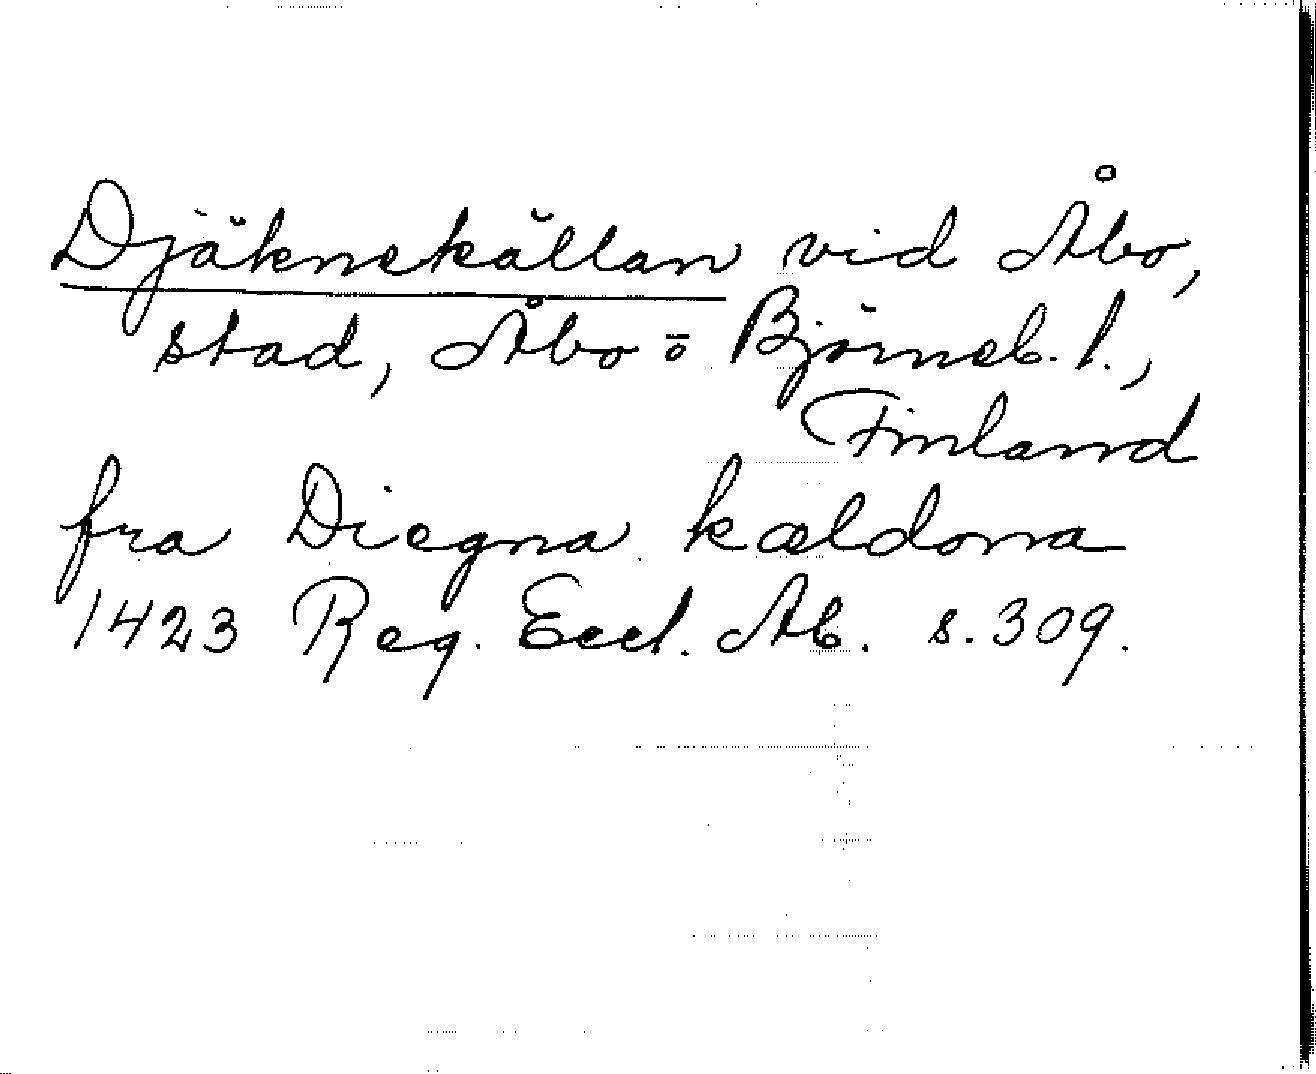 Djäknekällan vid Åbo,
stad, Åbo o Björneb. l.,
Finland
fra Diegna kældona
1423 Reg. Eccl. Ab. s. 309.